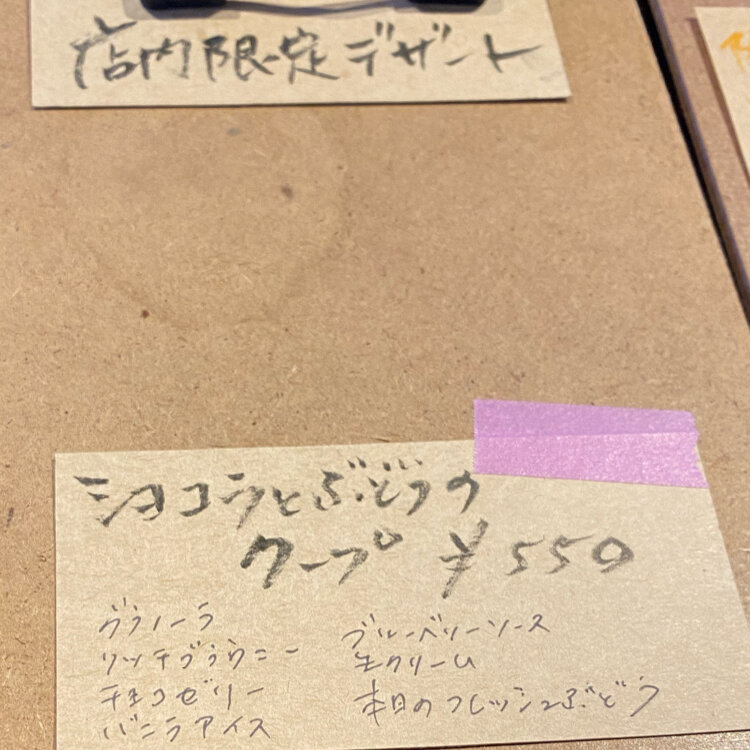 店内限定デザート
ショコラとぶどうの
クープ ¥550
グラノーラ
リッチブラウニー
チョコゼリー
バニラアイス
ブルーベリーソース
生クリーム
本日のフレッシュぶどう